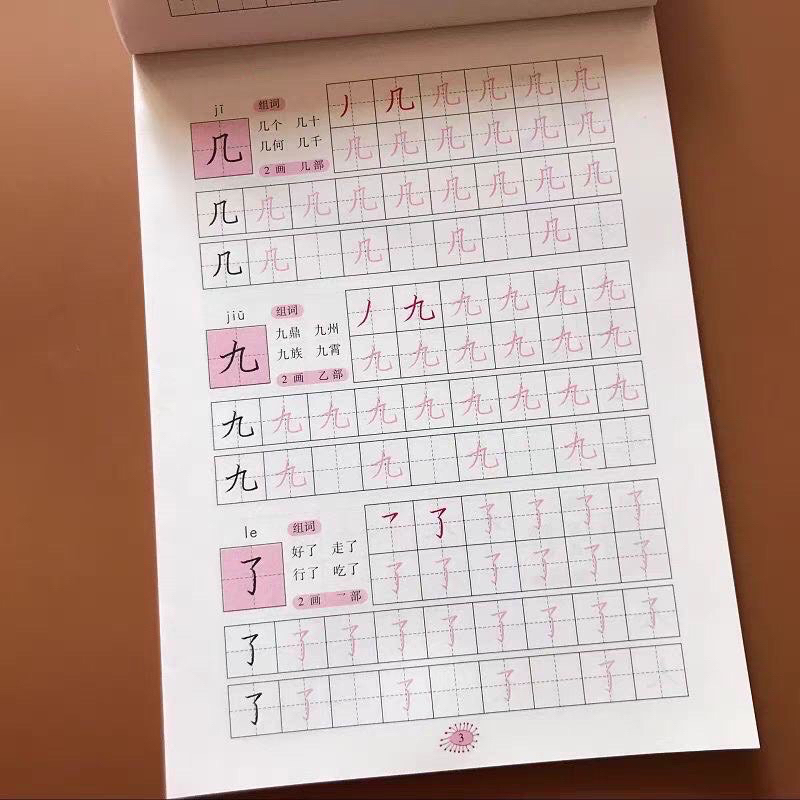 jī
组词
几
几个 几十
几何 几千
2画 几部
丿 几 几 几 几 几
几 几 几 几 几 几
几 几 几 几 几 几 几 几 几
几 几 几 几 几
jiǔ
组词
九
九鼎 九州
九族 九霄
2画 乙部
丿 九 九 九 九 九
九 九 九 九 九 九
九 九 九 九 九 九 九 九 九
九 九 九 九 九
le
组词
了
好了 走了
行了 吃了
2画 乛部
乛 了 了 了 了 了
了 了 了 了 了 了
了 了 了 了 了 了 了 了 了
了 了 了 了 了
3